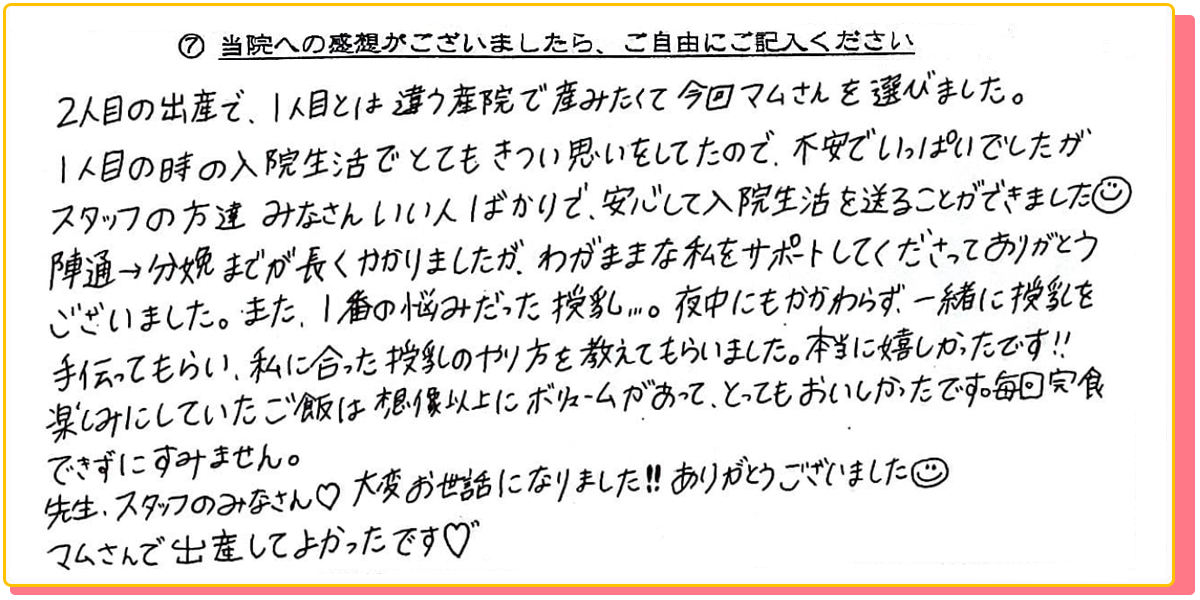 ⑦ 当院への感想がございましたら、ご自由にご記入ください
2人目の出産で、1人目とは違う産院で産みたくて今回マムさんを選びました。
1人目の時の入院生活でとてもきつい思いをしてたので、不安でいっぱいでしたが
スタッフの方達 みなさんいい人ばかりで、安心して入院生活を送ることができました☺
陣通→分娩までが長くかかりましたが、わがままな私をサポートしてくださってありがとう
ございました。また、1番の悩みだった授乳…。夜中にもかかわらず、一緒に授乳を
手伝ってもらい、私に合った授乳のやり方を教えてもらいました。本当に嬉しかったです!!
楽しみにしていたご飯は想像以上にボリュームがあって、とってもおいしかったです。毎回完食
できずにすみません。
先生、スタッフのみなさん♡ 大変お世話になりました!! ありがとうございました☺
マムさんで出産してよかったです♡